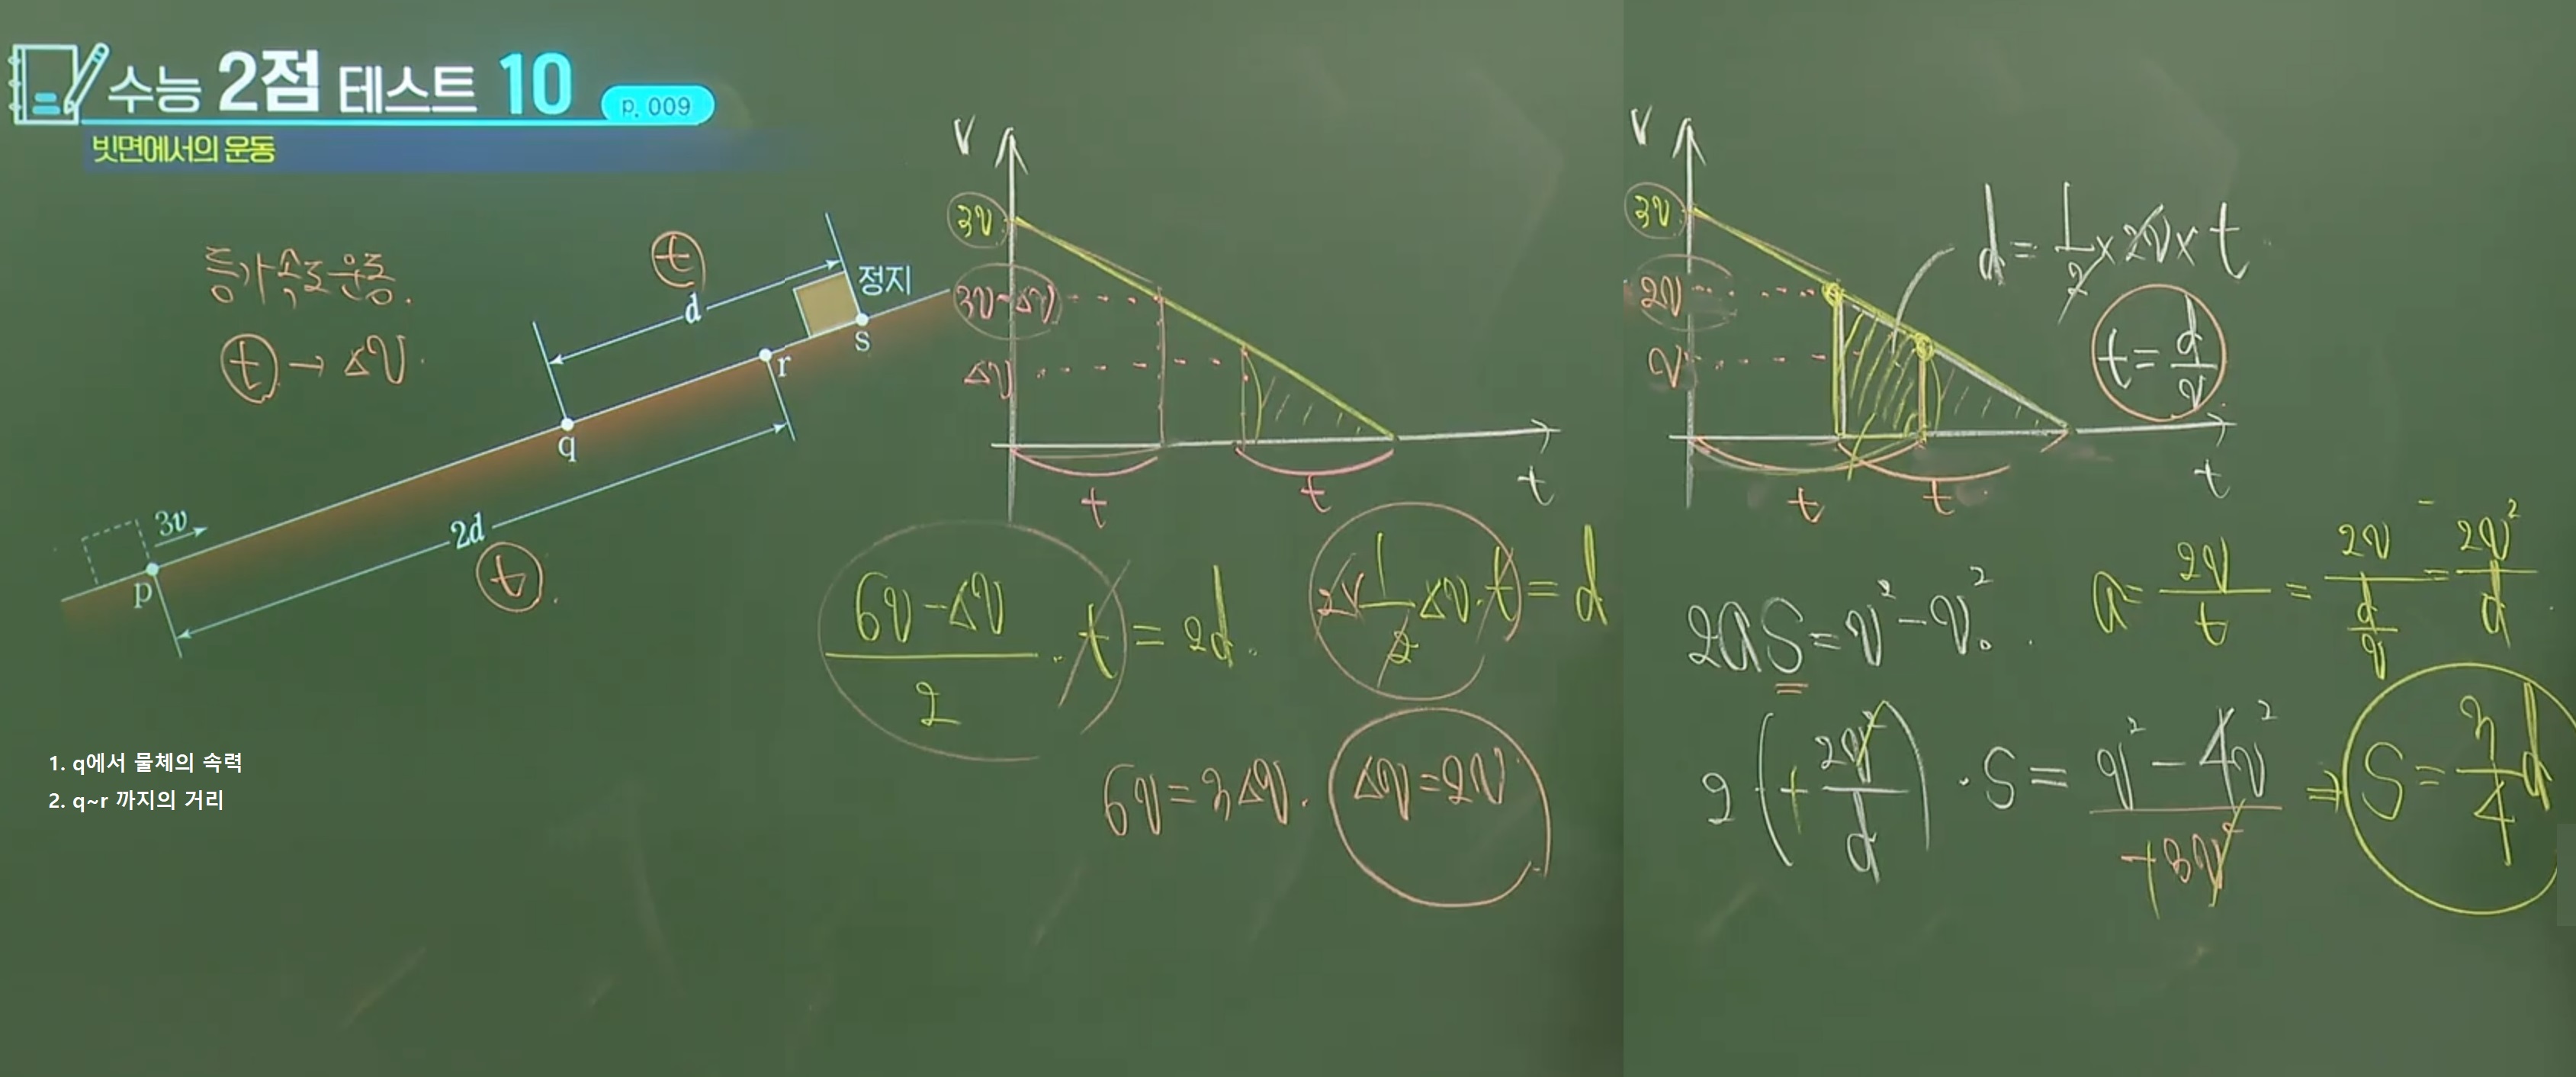 수능 2점 테스트 10 p. 009
빗면에서의 운동
등가속도 운동.
t → Δv.
t
d
정지
s
r
q
3v
p
2d
t
1. q에서 물체의 속력
2. q~r 까지의 거리
v
3v
3v-Δv
Δv
t
t
t
(6v-Δv)/2 · t = 2d.
2×1/2 Δv·t = d
6v = 3Δv. Δv = 2v
v
3v
2v
v
t
t
t
d = 1/2 × 2v × t
t = d/v
2as = v² - v₀².
a = 2v/t = 2v/(d/v) = 2v²/d
2(+2v²/d) · s = v² - 4v² ⇒ s = 3/4 d
+3v²